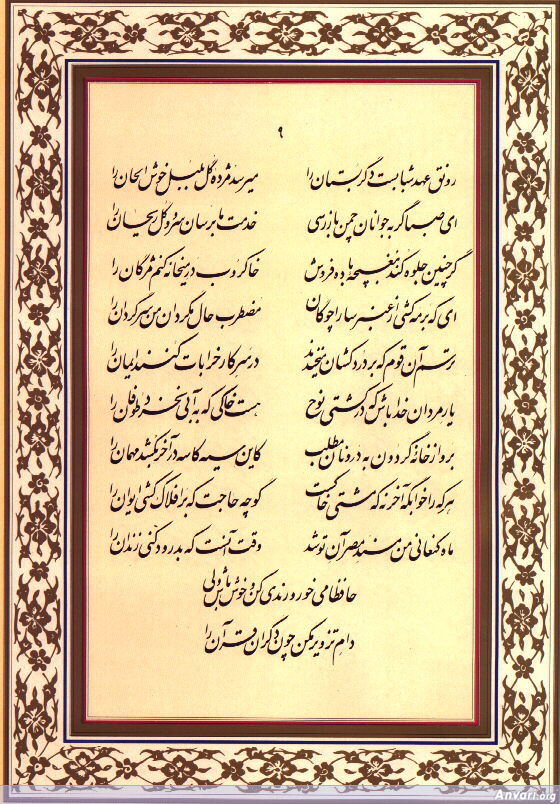 ۹
رونق عهد شبابست دگر بستان را میرسد مژده گل بلبل خوش الحان را
ای صبا گر به جوانان چمن بازرسی خدمت ما برسان سرو و گل و ریحان را
گر چنین جلوه کند مغبچه باده فروش خاکروب در میخانه کنم مژگان را
ای که بر مه کشی از عنبر سارا چوگان مضطرب حال مگردان من سرگردان را
ترسم آن قوم که بر دردکشان میخندند در سر کار خرابات کنند ایمان را
یار مردان خدا باش که در کشتی نوح هست خاکی که به آبی نخرد طوفان را
برو از خانه گردون به در و نان مطلب کاین سیه کاسه در آخر بکشد مهمان را
هر که را خوابگه آخر نه که مشتی خاکست گو چه حاجت که بر افلاک کشی ایوان را
ماه کنعانی من مسند مصر آن تو شد وقت آنست که بدرود کنی زندان را
حافظا می خور و رندی کن و خوش باش ولی
دام تزویر مکن چون دگران قرآن را
Anvari.org